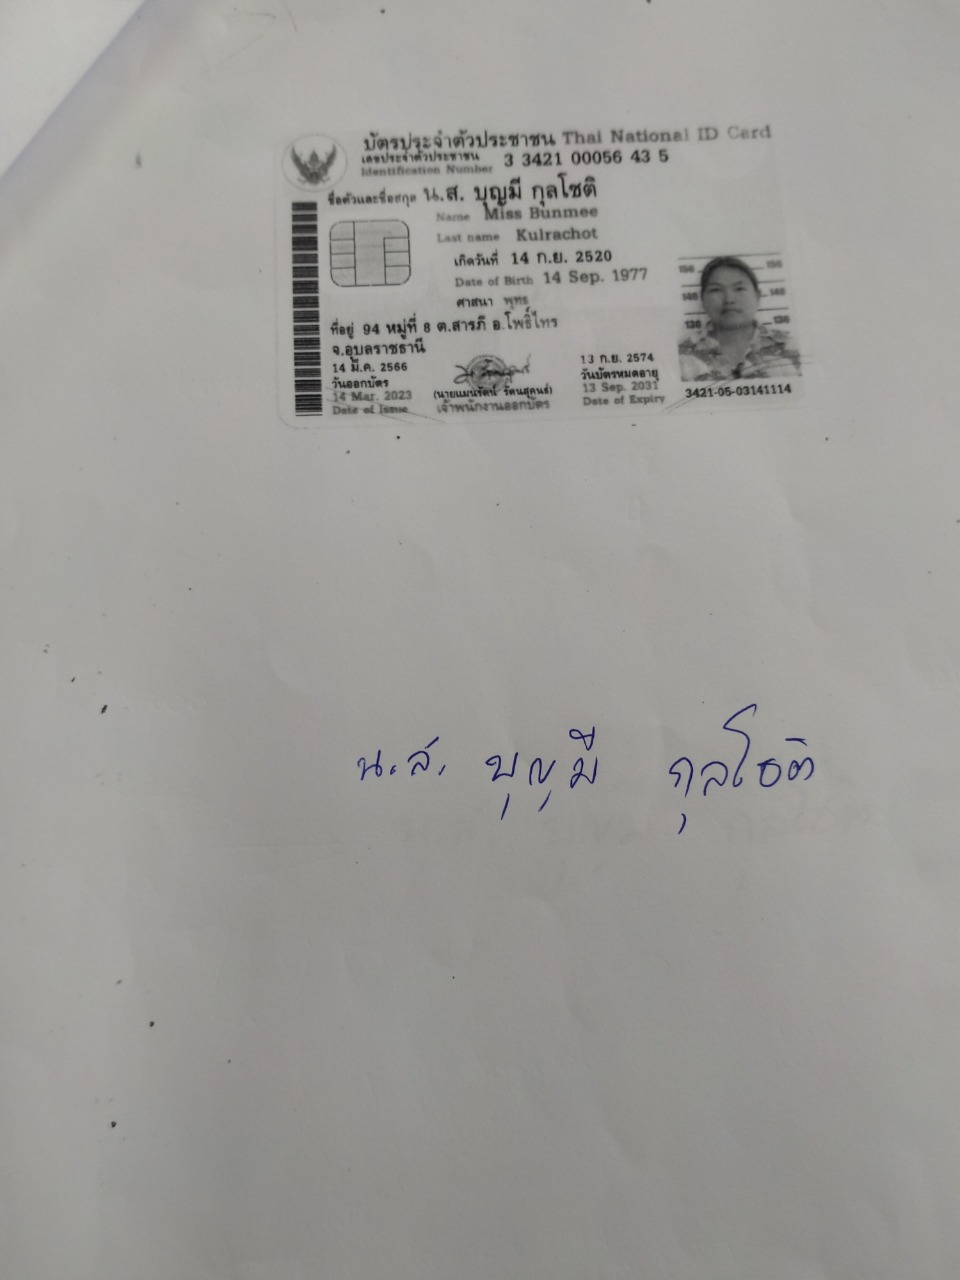 บัตรประจำตัวประชาชน Thai National ID Card
เลขประจำตัวประชาชน 3 3421 00056 43 5
Identification Number
ชื่อตัวและชื่อสกุล น.ส. บุญมี กุลโชติ
Name Miss Bunmee
Last name Kulrachot
เกิดวันที่ 14 ก.ย. 2520
Date of Birth 14 Sep. 1977
ศาสนา พุทธ
ที่อยู่ 94 หมู่ที่ 8 ต.สารภี อ.โพธิ์ไทร
จ.อุบลราชธานี
14 มี.ค. 2566
วันออกบัตร
14 Mar. 2023
Date of Issue
(นายแมนรัตน์ รัตนสุคนธ์)
เจ้าพนักงานออกบัตร
13 ก.ย. 2574
วันบัตรหมดอายุ
13 Sep. 2031
Date of Expiry
150 150
140 140
130 130
3421-05-03141114
น.ส. บุญมี กุลโชติ